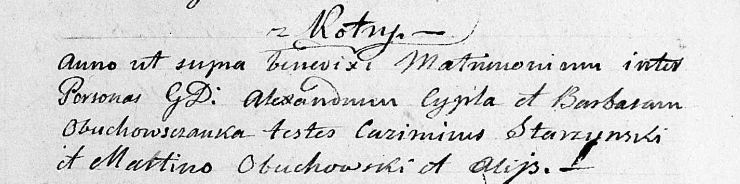 Kotry.
Anno ut supra benedixi Matrimonium inter
Personas GD: Alexandrum Cypla et Barbaram
Obuchowsczanka testes Cazimirus Starzynski
et Mattino Obuchowski et alijs.